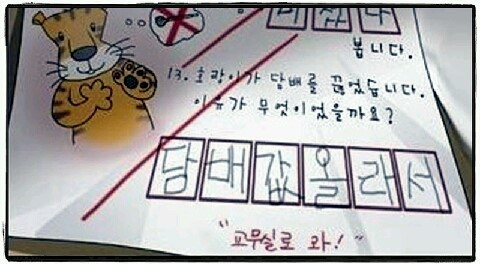 봅니다.
13. 호랑이가 담배를 끊었습니다.
이유가 무엇이었을까요?
담배값올라서
"교무실로 와!"